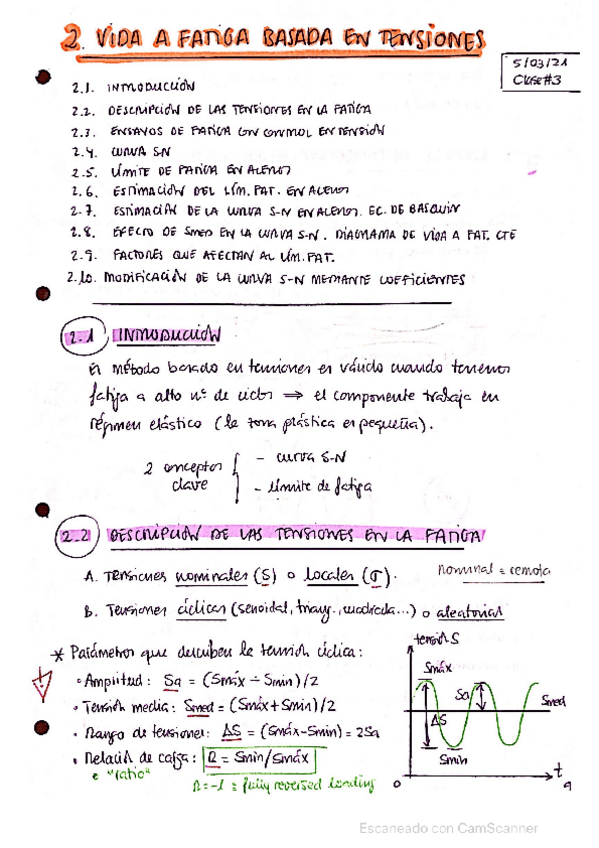 2. VIDA A FATIGA BASADA EN TENSIONES
5/03/21
Clase #3
2.1. INTRODUCCIÓN
2.2. DESCRIPCIÓN DE LAS TENSIONES EN LA FATIGA
2.3. ENSAYOS DE FATIGA CON CONTROL EN TENSIÓN
2.4. CURVA S-N
2.5. LÍMITE DE FATIGA EN ACEROS
2.6. ESTIMACIÓN DEL LÍM. FAT. EN ACEROS
2.7. ESTIMACIÓN DE LA CURVA S-N EN ACEROS. EC. DE BASQUIN
2.8. EFECTO DE Smed EN LA CURVA S-N. DIAGRAMA DE VIDA A FAT. CTE
2.9. FACTORES QUE AFECTAN AL LÍM. FAT.
2.10. MODIFICACIÓN DE LA CURVA S-N MEDIANTE COEFICIENTES
2.1 INTRODUCCIÓN
El método basado en tensiones es válido cuando tenemos
fatiga a alto nº de ciclos ⇒ el componente trabaja en
régimen elástico (la zona plástica es pequeña).
2 conceptos clave { - curva S-N
- límite de fatiga
2.2 DESCRIPCIÓN DE LAS TENSIONES EN LA FATIGA
A. Tensiones nominales (S) o locales (σ).
nominal = remota
B. Tensiones cíclicas (senoidal, triang., cuadrada...) o aleatorias
* Parámetros que describen la tensión cíclica:
• Amplitud: Sa = (Smáx - Smin)/2
• Tensión media: Smed = (Smáx + Smin)/2
• Rango de tensiones: ΔS = (Smáx - Smin) = 2Sa
• Relación de carga: R = Smin/Smáx
o "ratio"
R = -1 ≡ fully reversed loading
tensión S
Smáx
Sa
Smed
ΔS
Smin
t
0
Escaneado con CamScanner